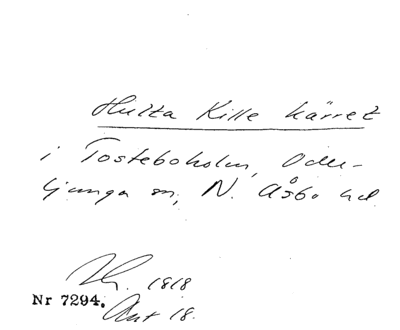 Hulta Kille kärret
i Tosteboholm, Oder-
ljunga sn, N. Åsbo hd
1818
Nr 7294. Akt 18.